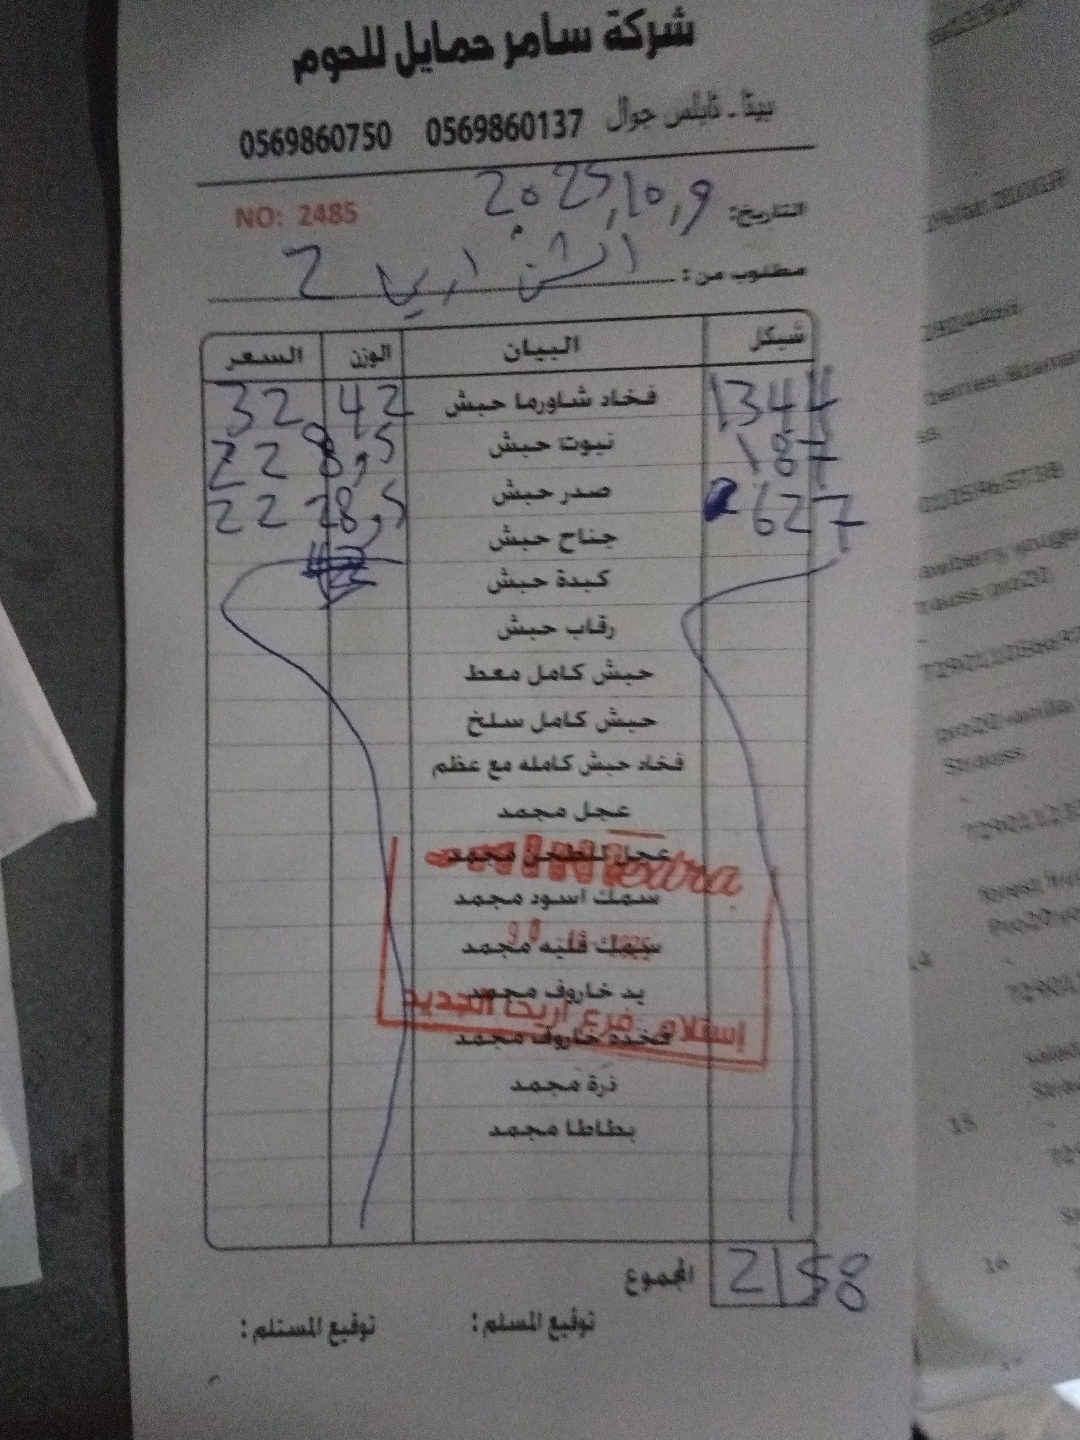 شركة سامر حمايل للحوم
بيتا - نابلس جوال 0569860137 0569860750
NO: 2485
التاريخ: 2025,10,9
مطلوب من: اريحا 2
شيكل البيان الوزن السعر
1344 فخاد شاورما حبش 42 32
187 نيوت حبش 8,5 22
627 صدر حبش 28,5 22
جناح حبش
كبدة حبش
رقاب حبش
حبش كامل معط
حبش كامل سلخ
فخاد حبش كامله مع عظم
عجل مجمد
عجل للطحن مجمد
extra
سمك اسود مجمد
سمك فليه مجمد
يد خاروف مجمد
إستلام فرع أريحا الجديد
فخده خاروف مجمد
ذرة مجمد
بطاطا مجمد
المجموع 2158
توقيع المسلم: توقيع المستلم: